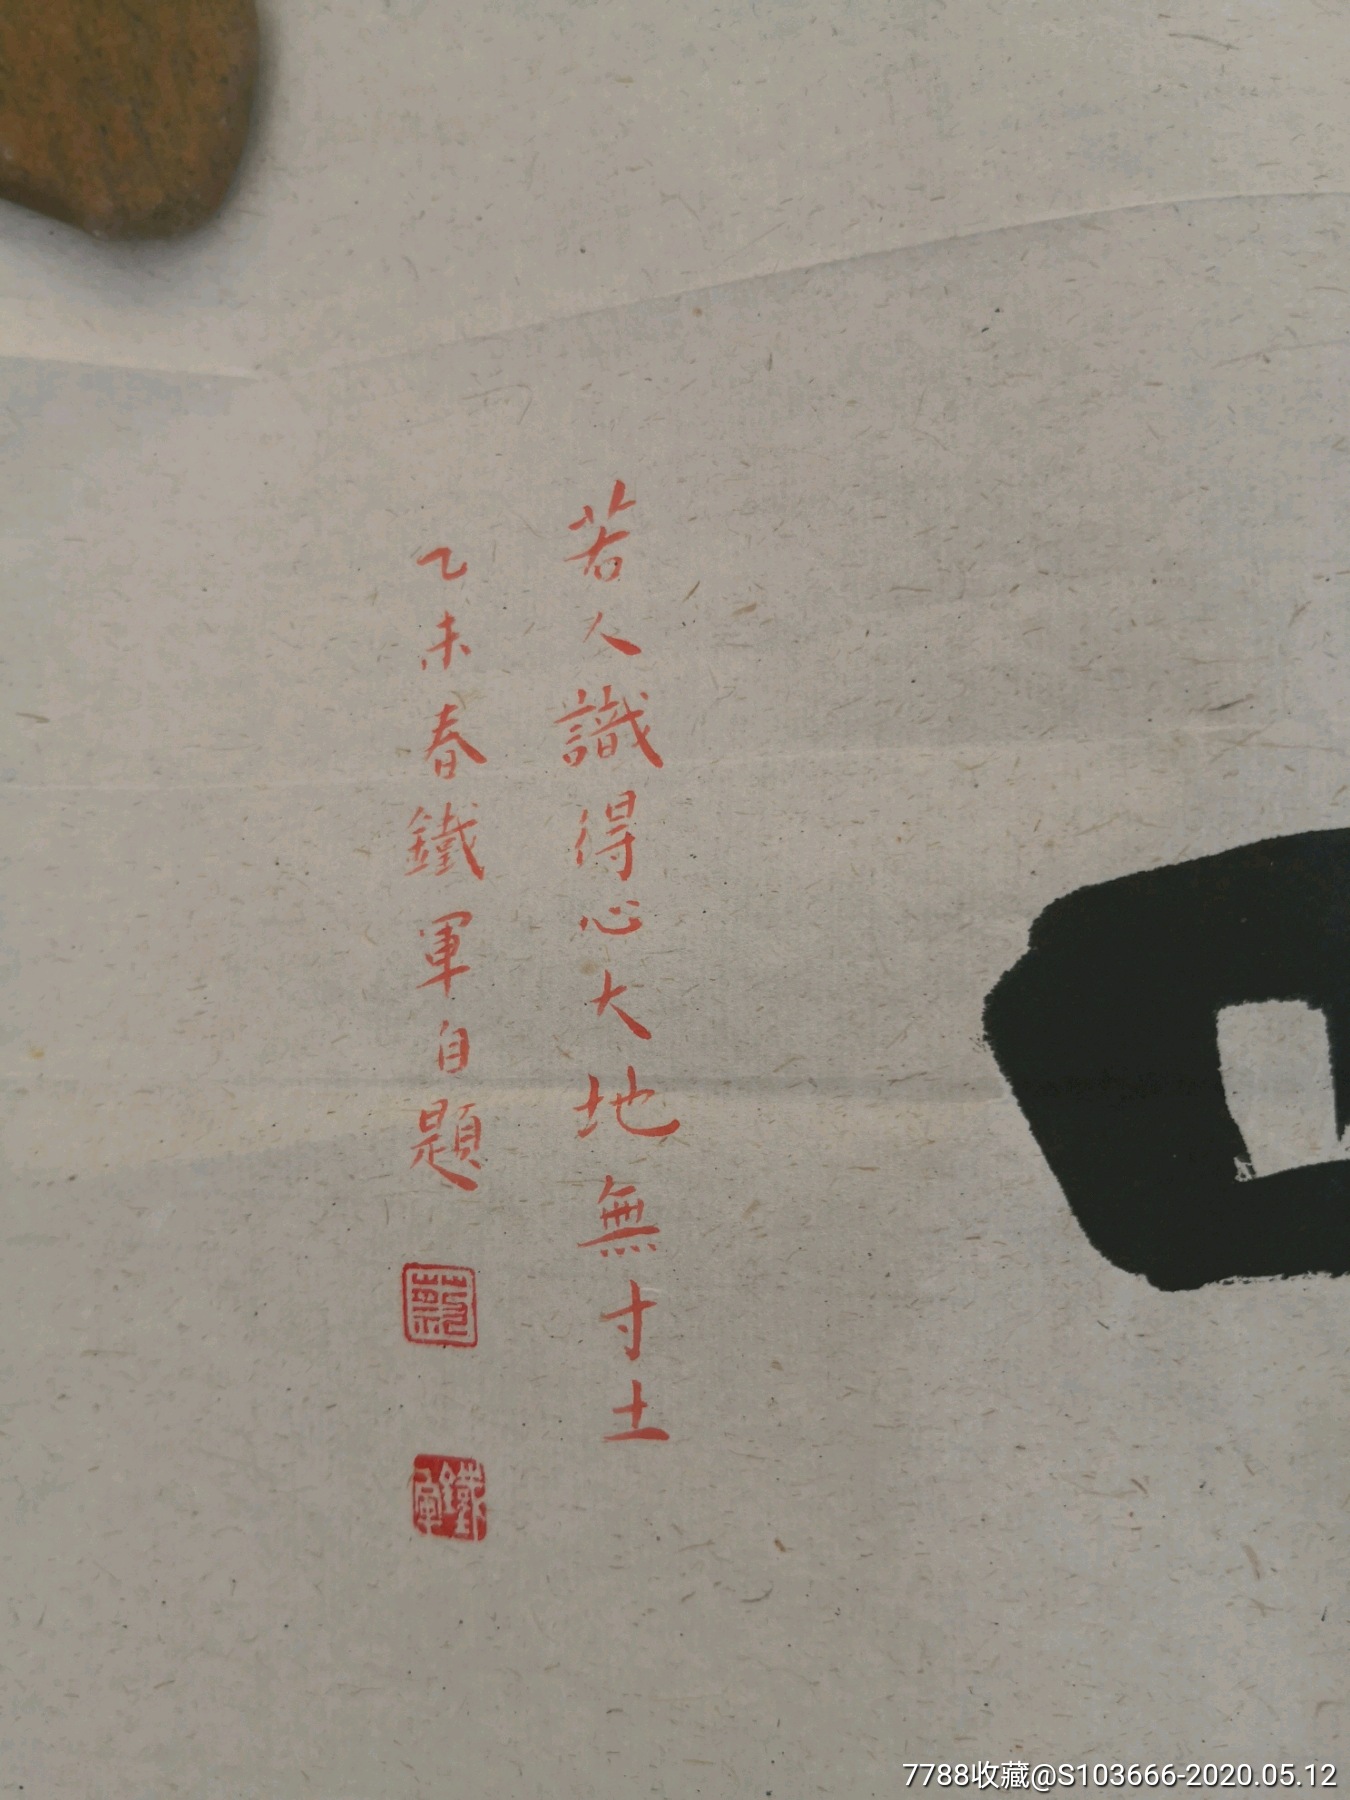 若人識得心大地無寸土
乙未春鐵軍自題
鐵軍
7788收藏@S103666-2020.05.12